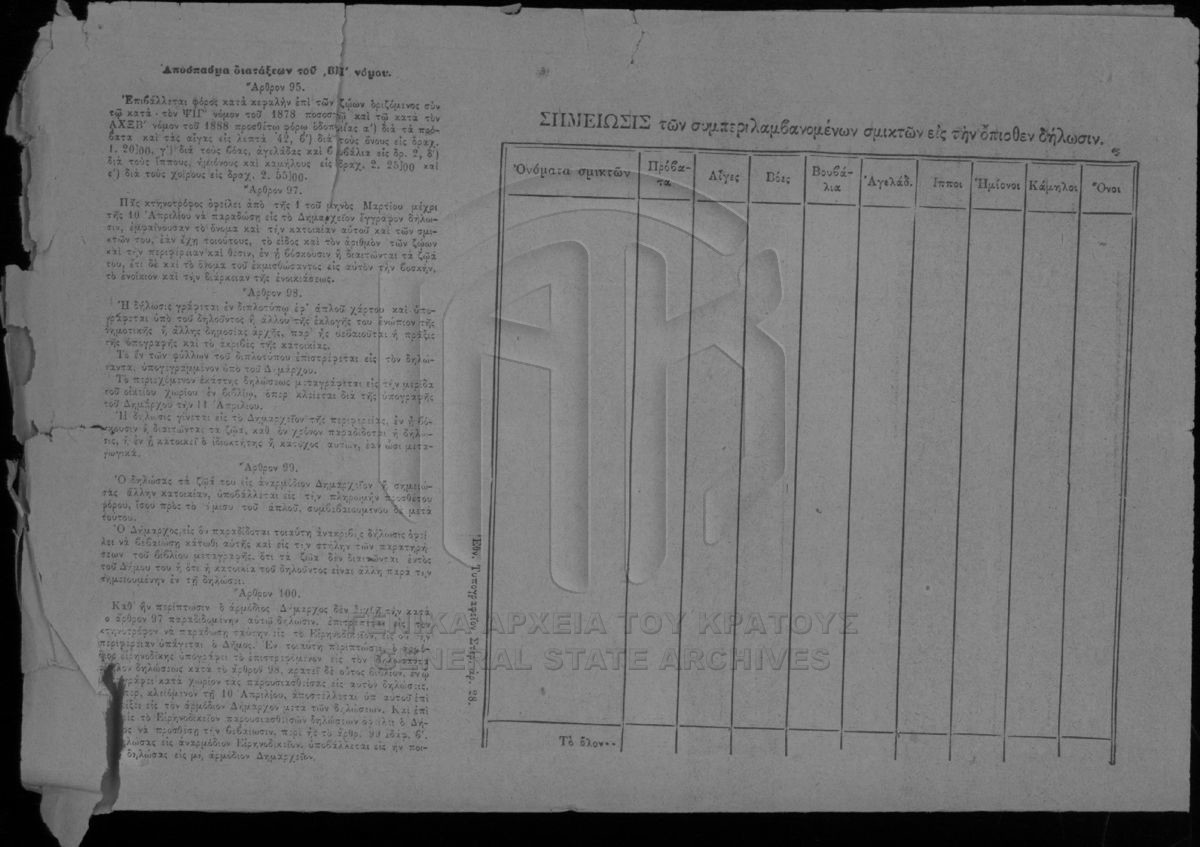 Ἀπόσπασμα διατάξεων τοῦ ͵ΒΙ' νόμου.
Ἄρθρον 95.
Ἐπιβάλλεται φόρος κατὰ κεφαλὴν ἐπὶ τῶν ζῴων ὁριζόμενος σὺν
τῷ κατὰ τὸν ΨΙΓ' νόμον τοῦ 1878 ποσοστῷ καὶ τῷ κατὰ τὸν
ΑΧΞΒ' νόμον τοῦ 1888 προσθέτῳ φόρῳ ὁδοποιΐας α') διὰ τὰ πρό-
βατα καὶ τὰς αἶγας εἰς λεπτὰ 42, β') διὰ τοὺς ὄνους εἰς δραχ.
1. 20]00, γ') διὰ τοὺς βόας, ἀγελάδας καὶ βουβάλια εἰς δρ. 2, δ')
διὰ τοὺς ἵππους, ἡμιόνους καὶ καμήλους εἰς δραχ. 2. 25]00 καὶ
ε') διὰ τοὺς χοίρους εἰς δραχ. 2. 55]00.
Ἄρθρον 97.
Πᾶς κτηνοτρόφος ὀφείλει ἀπὸ τῆς 1 τοῦ μηνὸς Μαρτίου μέχρι
τῆς 10 Ἀπριλίου νὰ παραδώσῃ εἰς τὸ Δημαρχεῖον ἔγγραφον δήλω-
σιν, ἐμφαίνουσαν τὸ ὄνομα καὶ τὴν κατοικίαν αὐτοῦ καὶ τῶν σμι-
κτῶν του, ἐὰν ἔχῃ τοιούτους, τὸ εἶδος καὶ τὸν ἀριθμὸν τῶν ζῴων
καὶ τὴν περιφέρειαν καὶ θέσιν, ἐν ᾗ βόσκουσιν ἢ διαιτῶνται τὰ ζῷά
του, ἔτι δὲ καὶ τὸ ὄνομα τοῦ ἐκμισθώσαντος εἰς αὐτὸν τὴν βοσκήν,
τὸ ἐνοίκιον καὶ τὴν διάρκειαν τῆς ἐνοικιάσεως.
Ἄρθρον 98.
Ἡ δήλωσις γράφεται ἐν διπλοτύπῳ ἐφ' ἁπλοῦ χάρτου καὶ ὑπο-
γράφεται ὑπὸ τοῦ δηλοῦντος ἢ ἄλλου τῆς ἐκλογῆς του ἐνώπιον τῆς
δημοτικῆς ἢ ἄλλης δημοσίας ἀρχῆς, παρ' ἧς βεβαιοῦται ἡ πρᾶξις
τῆς ὑπογραφῆς καὶ τὸ ἀκριβὲς τῆς κατοικίας.
Τὸ ἓν τῶν φύλλων τοῦ διπλοτύπου ἐπιστρέφεται εἰς τὸν δηλώ-
σαντα, ὑπογεγραμμένον ὑπὸ τοῦ Δημάρχου.
Τὸ περιεχόμενον ἑκάστης δηλώσεως μεταγράφεται εἰς τὴν μερίδα
τοῦ οἰκείου χωρίου ἐν βιβλίῳ, ὅπερ κλείεται διὰ τῆς ὑπογραφῆς
τοῦ Δημάρχου τὴν 11 Ἀπριλίου.
Ἡ δήλωσις γίνεται εἰς τὸ Δημαρχεῖον τῆς περιφερείας, ἐν ᾗ βό-
σκουσιν ἢ διαιτῶνται τὰ ζῷα, καθ' ὃν χρόνον παραδίδοται ἡ δήλω-
σις, ἢ ἐν ᾗ κατοικεῖ ὁ ἰδιοκτήτης ἢ κάτοχος αὐτῶν, ἐὰν ὦσι μετα-
γωγικά.
Ἄρθρον 99.
Ὁ δηλώσας τὰ ζῷά του εἰς ἀναρμόδιον Δημαρχεῖον ἢ σημειώ-
σας ἄλλην κατοικίαν, ὑποβάλλεται εἰς τὴν πληρωμὴν προσθέτου
φόρου, ἴσου πρὸς τὸ ἥμισυ τοῦ ἁπλοῦ, συμβεβαιουμένου δὲ μετὰ
τούτου.
Ὁ Δήμαρχος, εἰς ὃν παραδίδοται τοιαύτη ἀνακριβὴς δήλωσις ὀφεί-
λει νὰ βεβαιώσῃ κάτωθι αὐτῆς καὶ εἰς τὴν στήλην τῶν παρατηρή-
σεων τοῦ βιβλίου μεταγραφῆς, ὅτι τὰ ζῷα δὲν διαιτῶνται ἐντὸς
τοῦ Δήμου του ἢ ὅτι ἡ κατοικία τοῦ δηλοῦντος εἶναι ἄλλη παρὰ τὴν
σημειουμένην ἐν τῇ δηλώσει.
Ἄρθρον 100.
Καθ' ἣν περίπτωσιν ὁ ἁρμόδιος Δήμαρχος δὲν δεχθῇ τὴν κατὰ
τὸ ἄρθρον 97 παραδιδομένην αὐτῷ δήλωσιν, ἐπιτρέπεται εἰς τὸν
κτηνοτρόφον νὰ παραδώσῃ ταύτην εἰς τὸ Εἰρηνοδικεῖον, εἰς οὗ τὴν
περιφέρειαν ὑπάγεται ὁ Δῆμος. Ἐν τοιαύτῃ περιπτώσει ὁ ἁρμό-
διος εἰρηνοδίκης ὑπογράφει τὸ ἐπιστρεφόμενον εἰς τὸν δηλώσαντα
φύλλον δηλώσεως κατὰ τὸ ἄρθρον 98, κρατεῖ δὲ οὗτος βιβλίον, ἐν ᾧ
γράφει κατὰ χωρίον τὰς παρουσιασθείσας εἰς αὐτὸν δηλώσεις,
περ, κλειόμενον τῇ 10 Ἀπριλίου, ἀποστέλλεται ὑπ' αὐτοῦ ἐπὶ
είξει εἰς τὸν ἁρμόδιον Δήμαρχον μετὰ τῶν δηλώσεων. Καὶ ἐπὶ
εἰς τὸ Εἰρηνοδικεῖον παρουσιασθεισῶν δηλώσεων ὀφείλει ὁ Δή-
ος νὰ προσθέσῃ τὴν βεβαίωσιν, περὶ ἧς τὸ ἄρθρ. 99 ἐδάφ. β'.
ηλώσας εἰς ἀναρμόδιον Εἰρηνοδικεῖον, ὑποβάλλεται εἰς ἣν ποι-
δηλώσας εἰς μὴ ἁρμόδιον Δημαρχεῖον.
Ἐθν. Τυπογραφεῖον, 28.
ΣΗΜΕΙΩΣΙΣ τῶν συμπεριλαμβανομένων σμικτῶν εἰς τὴν ὄπισθεν δήλωσιν.
Ὀνόματα σμικτῶν Πρόβα-τα Αἶγες Βόες Βουβά-λια Ἀγελάδ. Ἵπποι Ἡμίονοι Κάμηλοι Ὄνοι
Τὸ ὅλον
ΓΕΝΙΚΑ ΑΡΧΕΙΑ ΤΟΥ ΚΡΑΤΟΥΣ
GENERAL STATE ARCHIVES